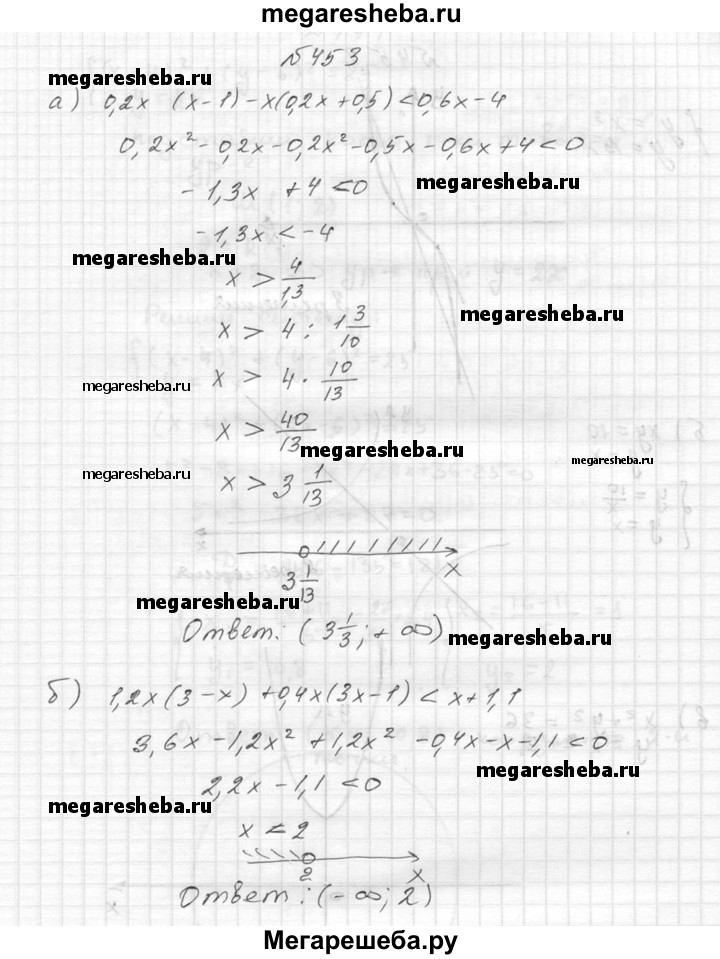 megaresheba.ru
№453
megaresheba.ru
а) 0,2x (x-1) - x(0,2x+0,5) < 0,6x-4
0,2x² - 0,2x - 0,2x² - 0,5x - 0,6x + 4 < 0
- 1,3x + 4 < 0 megaresheba.ru
- 1,3x < - 4
megaresheba.ru
x > 4/1,3
x > 4 : 1 3/10 megaresheba.ru
megaresheba.ru x > 4 · 10/13
x > 40/13 megaresheba.ru
megaresheba.ru x > 3 1/13 megaresheba.ru
x
megaresheba.ru
3 1/13
megaresheba.ru
Ответ: (3 1/3; + ∞) megaresheba.ru
б) 1,2x(3-x) + 0,4x(3x-1) < x+1,1
3,6x - 1,2x² + 1,2x² - 0,4x - x - 1,1 < 0
megaresheba.ru
2,2x - 1,1 < 0
megaresheba.ru
x < 2
2 x
Ответ: (- ∞; 2)
Мегарешеба.ру